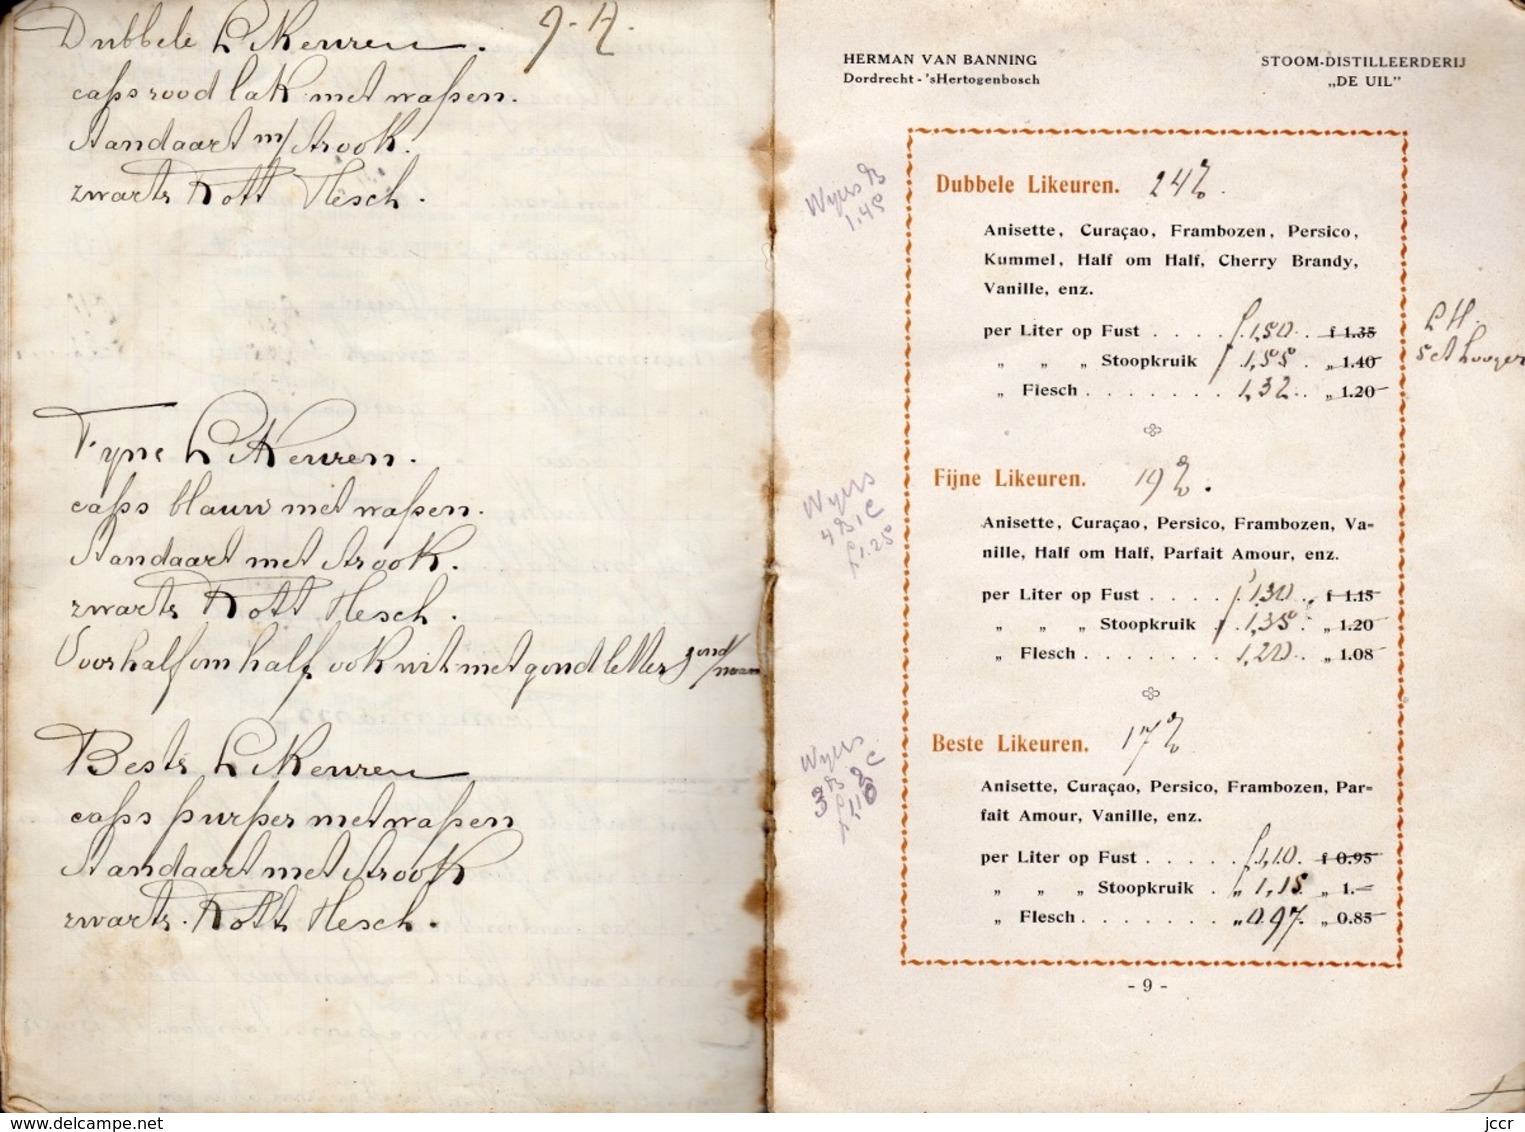 Dubbele Likeuren.
caps rood lak met wapen.
Standaart m/ strook.
zwarte Rott Flesch.
Fijne Likeuren.
caps blauw met wapen.
Standaart met strook.
zwarte Rott Flesch.
Voor half om half ook wit met goud letter
Beste Likeuren
caps purper met wapen
Standaart met strook
zwarte Rott Flesch.
HERMAN VAN BANNING
Dordrecht - 'sHertogenbosch
STOOM-DISTILLEERDERIJ
„DE UIL"
Wyers
1.45
Dubbele Likeuren. 24%.
Anisette, Curaçao, Frambozen, Persico,
Kummel, Half om Half, Cherry Brandy,
Vanille, enz.
per Liter op Fust . . . . f 1,50 . . f 1.35
„ „ „ Stoopkruik f 1,55 . „ 1.40
„ Flesch . . . . . . . 1,32 . . „ 1.20
L H.
5 ct hooger
Wyers
f 1.25
Fijne Likeuren. 19%.
Anisette, Curaçao, Persico, Frambozen, Va-
nille, Half om Half, Parfait Amour, enz.
per Liter op Fust . . . . f 1,30 . f 1.15
„ „ „ Stoopkruik f 1,35 . „ 1.20
„ Flesch . . . . . . . 1,20 . . „ 1.08
Wyers
Beste Likeuren. 17%
Anisette, Curaçao, Persico, Frambozen, Par-
fait Amour, Vanille, enz.
per Liter op Fust . . . . . f 1,10 . f 0.95
„ „ „ Stoopkruik . „ 1,15 „ 1.—
„ Flesch . . . . . . . „ 0.97. „ 0.85
- 9 -
delcampe.net
jccr